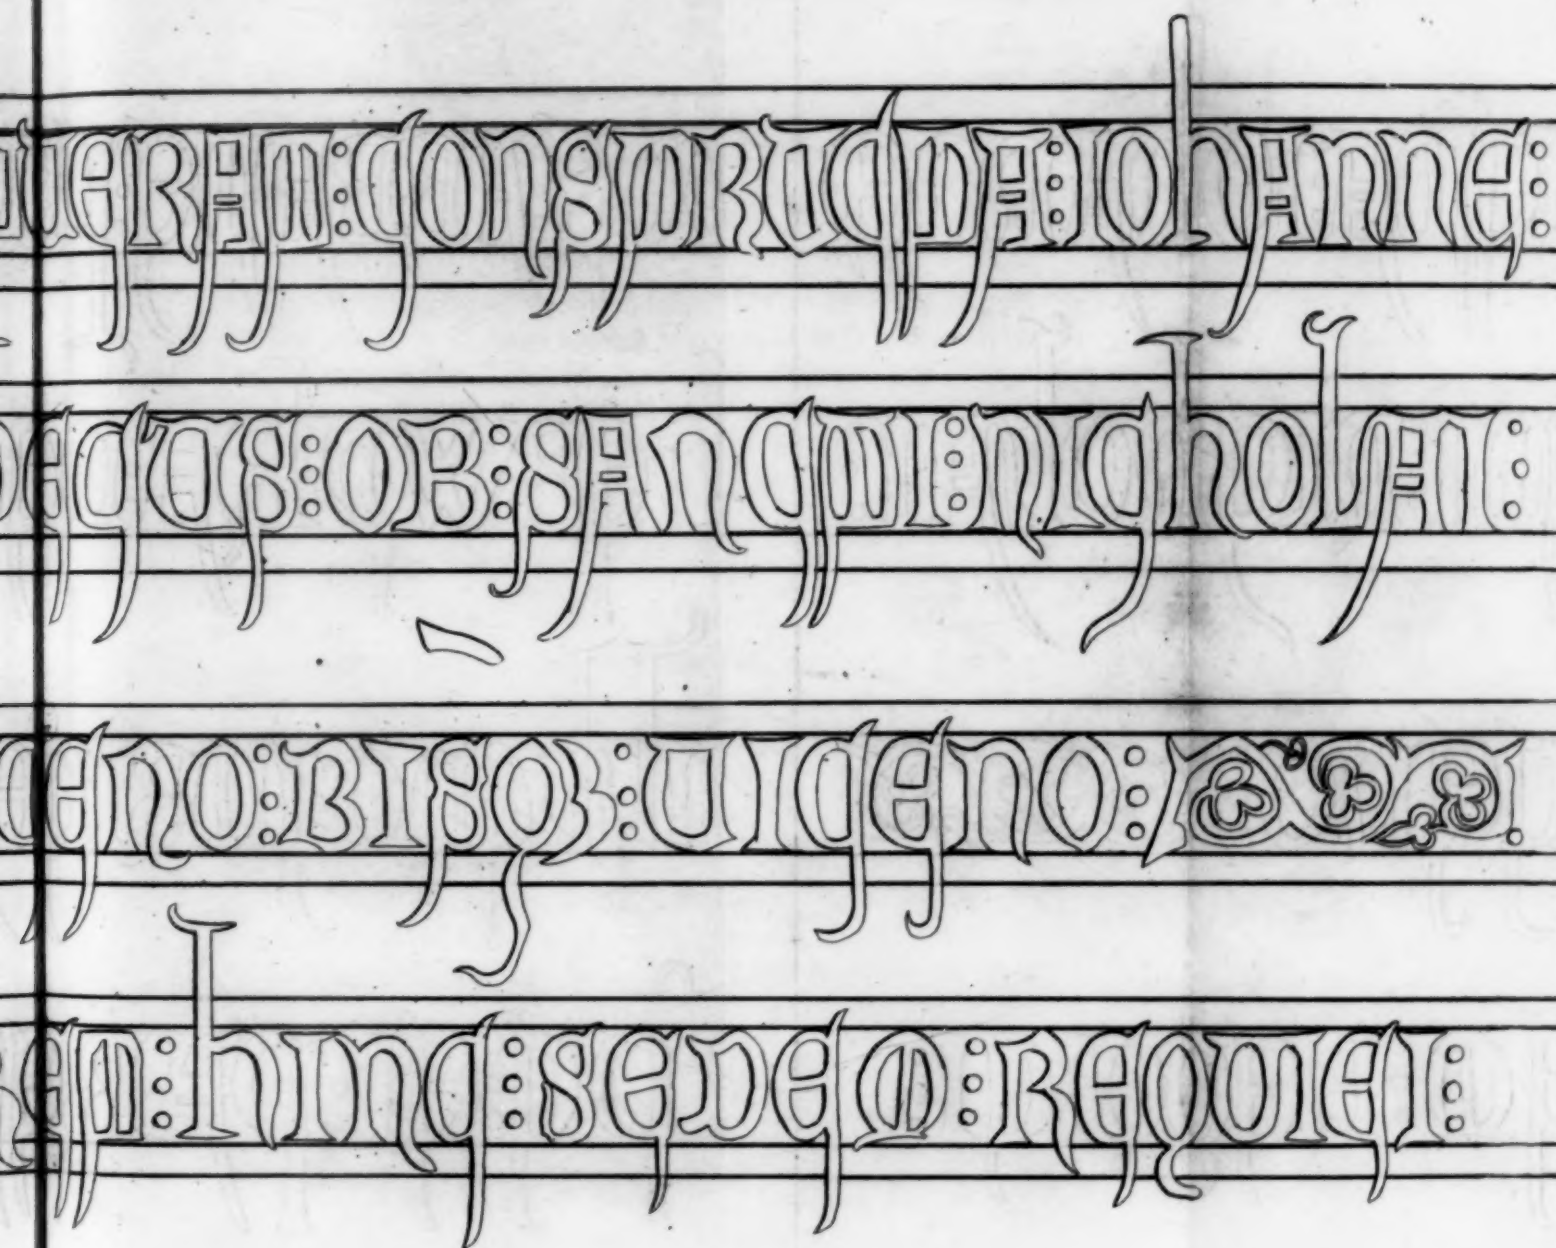 UERAT : CONSTRUCTA : IOHANNE :
DECUS : OB : SANCTI : NICHOLAI :
CENO : BISQ3 : UICENO :
RET : HINC : SEDEM : REQUIEI :